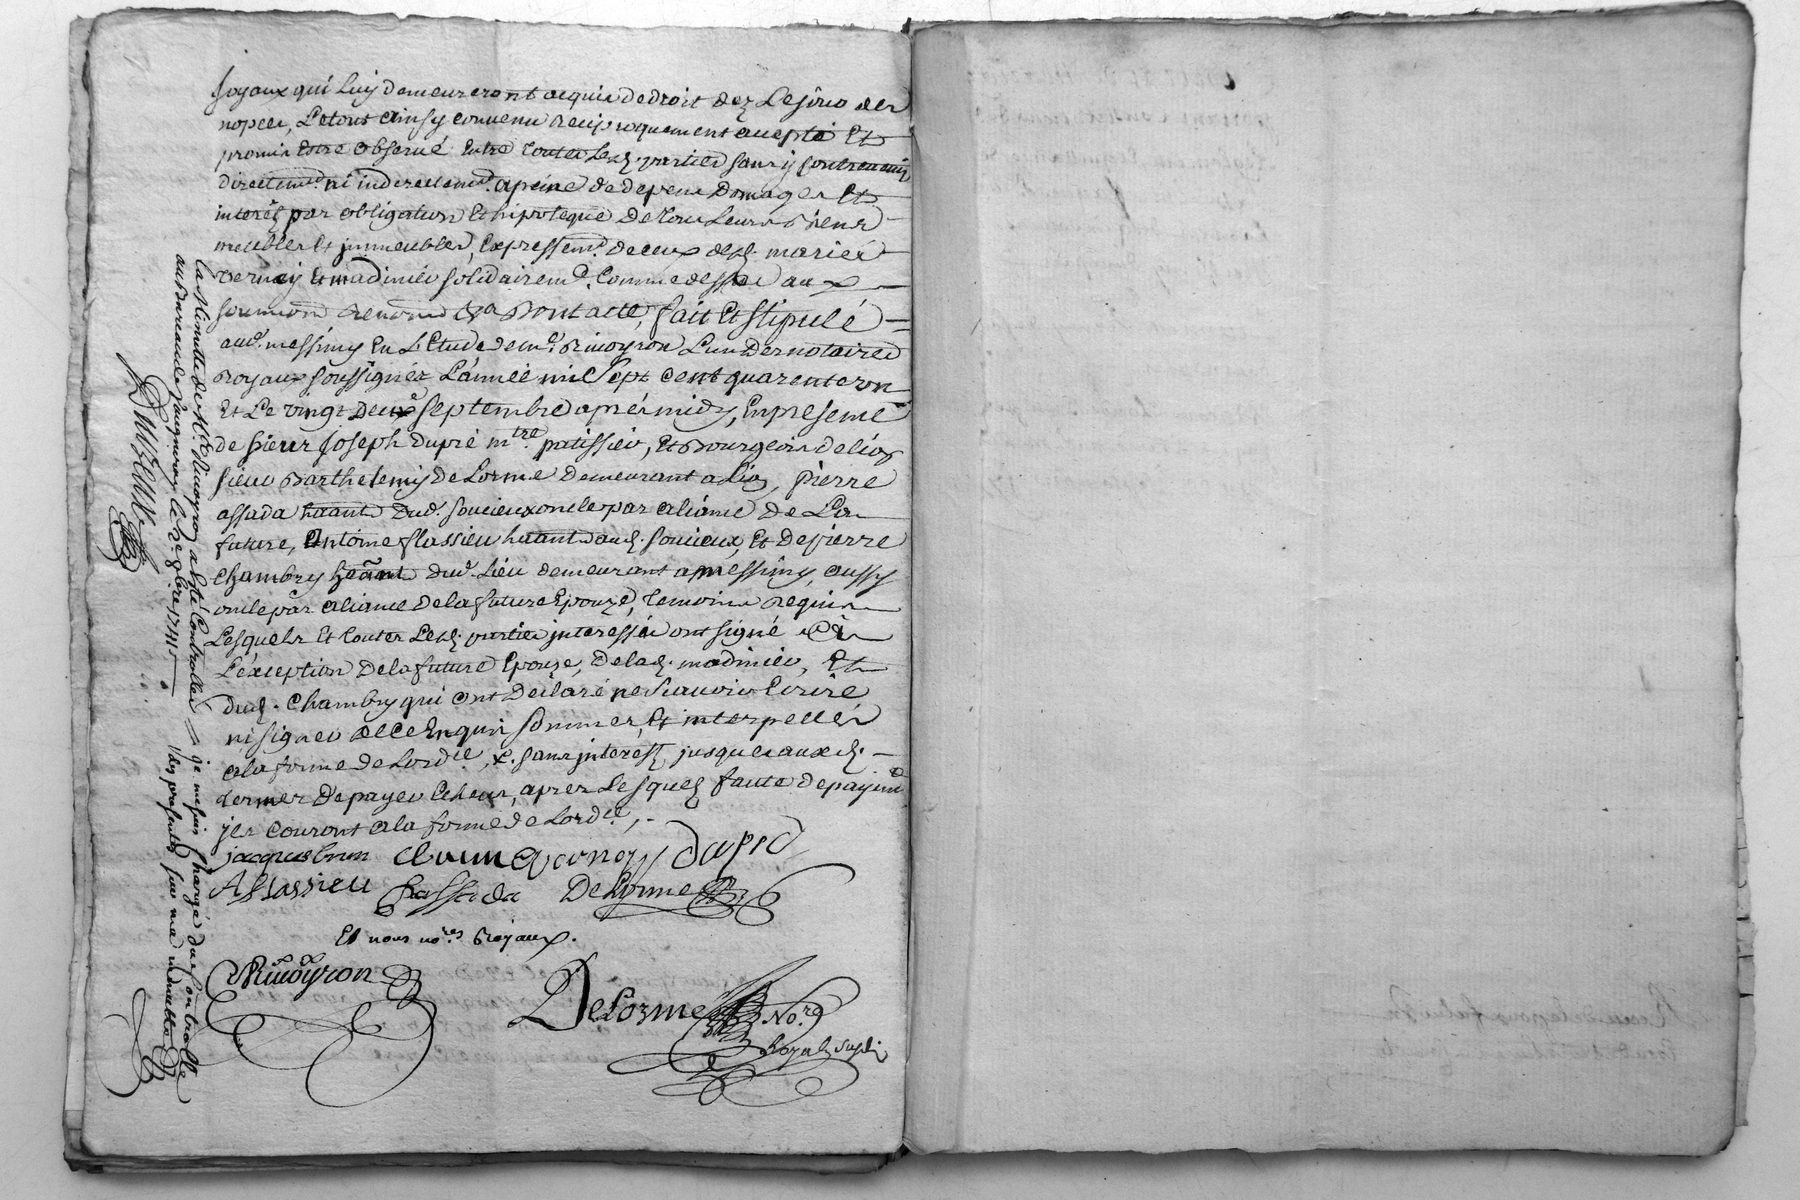 joyaux qui luy demeureront acquis de droit dez le jour des
nopces, le tout ainsy convenu reciproquement accepté et
promis estre observé entre toutes lesd. parties sans y contrevenir
directemt. ni indirectemt. a peine de depens domages et
interêts par obligation et hipoteque de tous leurs biens
meubles et immeubles, expressemt. de ceux desd. mariés
vernay et madinier solidairemt. comme dessus aux
soumions renons. et a dont acte, fait et stipulé
aud. messimy en l'etude de me. Rivoyron l'un des notaires
royaux soussignés l'année mil sept cent quarente un
et le vingt deux septembre aprés midy, en presence
de sieur Joseph dupré mtre. patissier, et bourgeois de lion
sieur Barthelemy delorme demeurant a lion, pierre
assada hãant dud. soucieux oncle par aliance de la
future, antoine flassieu hãtant aud. soucieux, et de pierre
Chambry hãant dud. lieu demeurant a messimy, aussy
oncle par aliance de la future epouze, temoins requis
lesquels et toutes lesd. parties interessées ont signé
l'exception de la future epouze, de lad. madinier, et
dud. Chambry qui ont declaré ne scavoir ecrire
ni signer de ce enquis sommes, et interpellés
a la forme de lordce, x. sans interest jusques auxd.
termes de payer iceluy, apres lesquels faute de payemt
jls couront a la forme de lordce,.
jacques brun Claune vernay Dupré
A flassieu passada Delorme
Et nous nores. Royaux.
Rivoyron
DeLorme Nore
Royal
la minutte de Me Rivoyron a esté Controllée
au Bureau de Vaugneray le 7bre 1741
je me suis chargé du Controlle
des presentes sur ma minutte